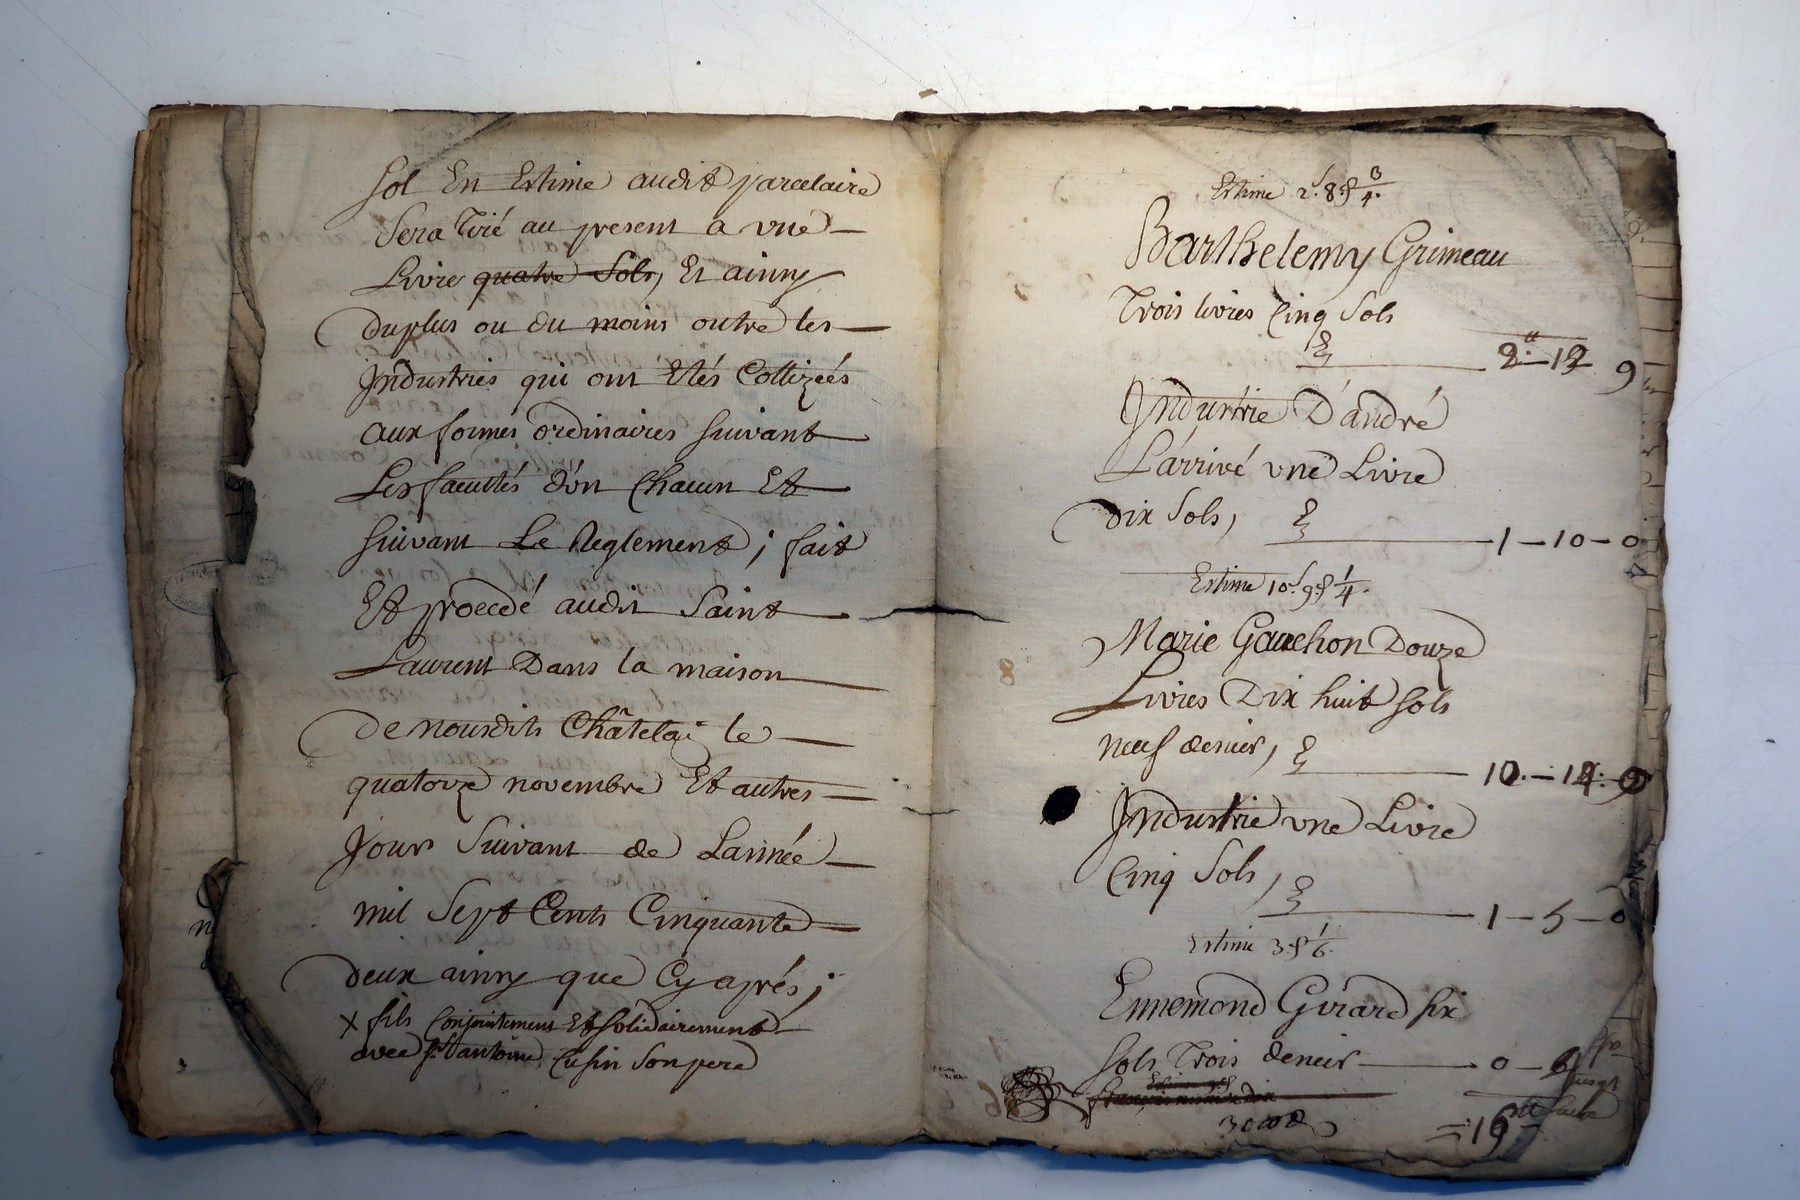 sol En Estime audit parcelaire
Sera Tiré au present a vne
Livre quatre Sols, Et ainsy
duplus ou du moins outre les
Industries qui ont Etés Cottizéés
aux formes ordinaires suivant
Les facultés d'un Chacun Et
suivant Le Reglement; fait
Et procedé audit Saint
Laurent Dans la maison
de nousdits Châtelai le
quatorze novembre Et autres
Jour Suivant de Lannéé
mil Sept Cents Cinquante
deux ainsy que Cy aprés;
x fils Conjointement Et solidairement
avec Sr. antoine Cusin Son pere
Estime 2s. 8d 3/4.
Barthelemy Grimeau
Trois livres Cinq Sols
2tt. 12 9
Industrie D'andré
L'arrivé vne Livre
dix Sols, 1 - 10 - 0
Estime 10s. 9d 1/4.
Marie Gauchon Douze
Livres Dix huit sols
neuf denier, 10. - 12. 9
Industrie vne Livre
Cinq Sols, 1 - 5 - 0
Estime 3d 1/6.
Ennemond Girard six
sols Trois denier 0 - 6
16tt